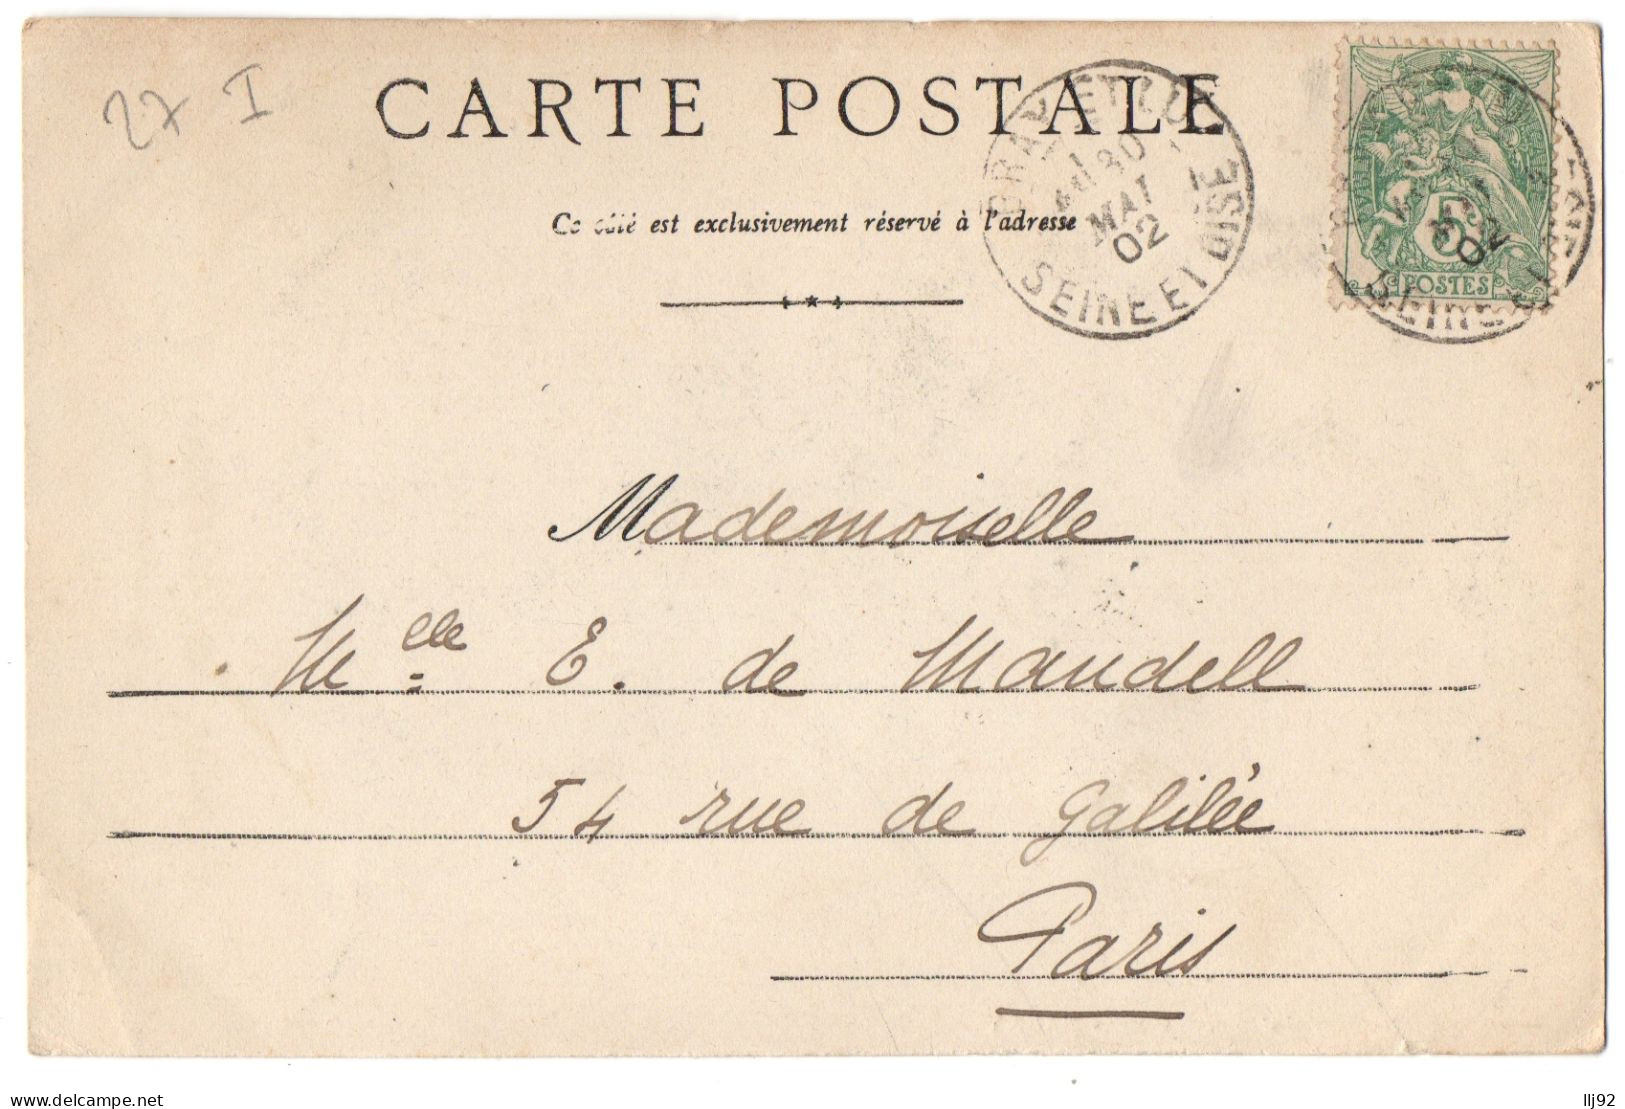 27 I
CARTE POSTALE
Ce côté est exclusivement réservé à l'adresse
BRAY ET LU
30
MAI
02
SEINE ET OISE
5c
POSTES
02
SEINE
OISE
Mademoiselle
Melle E. de Mandell
54 rue de Galilée
Paris
Delcampe.net
llj92